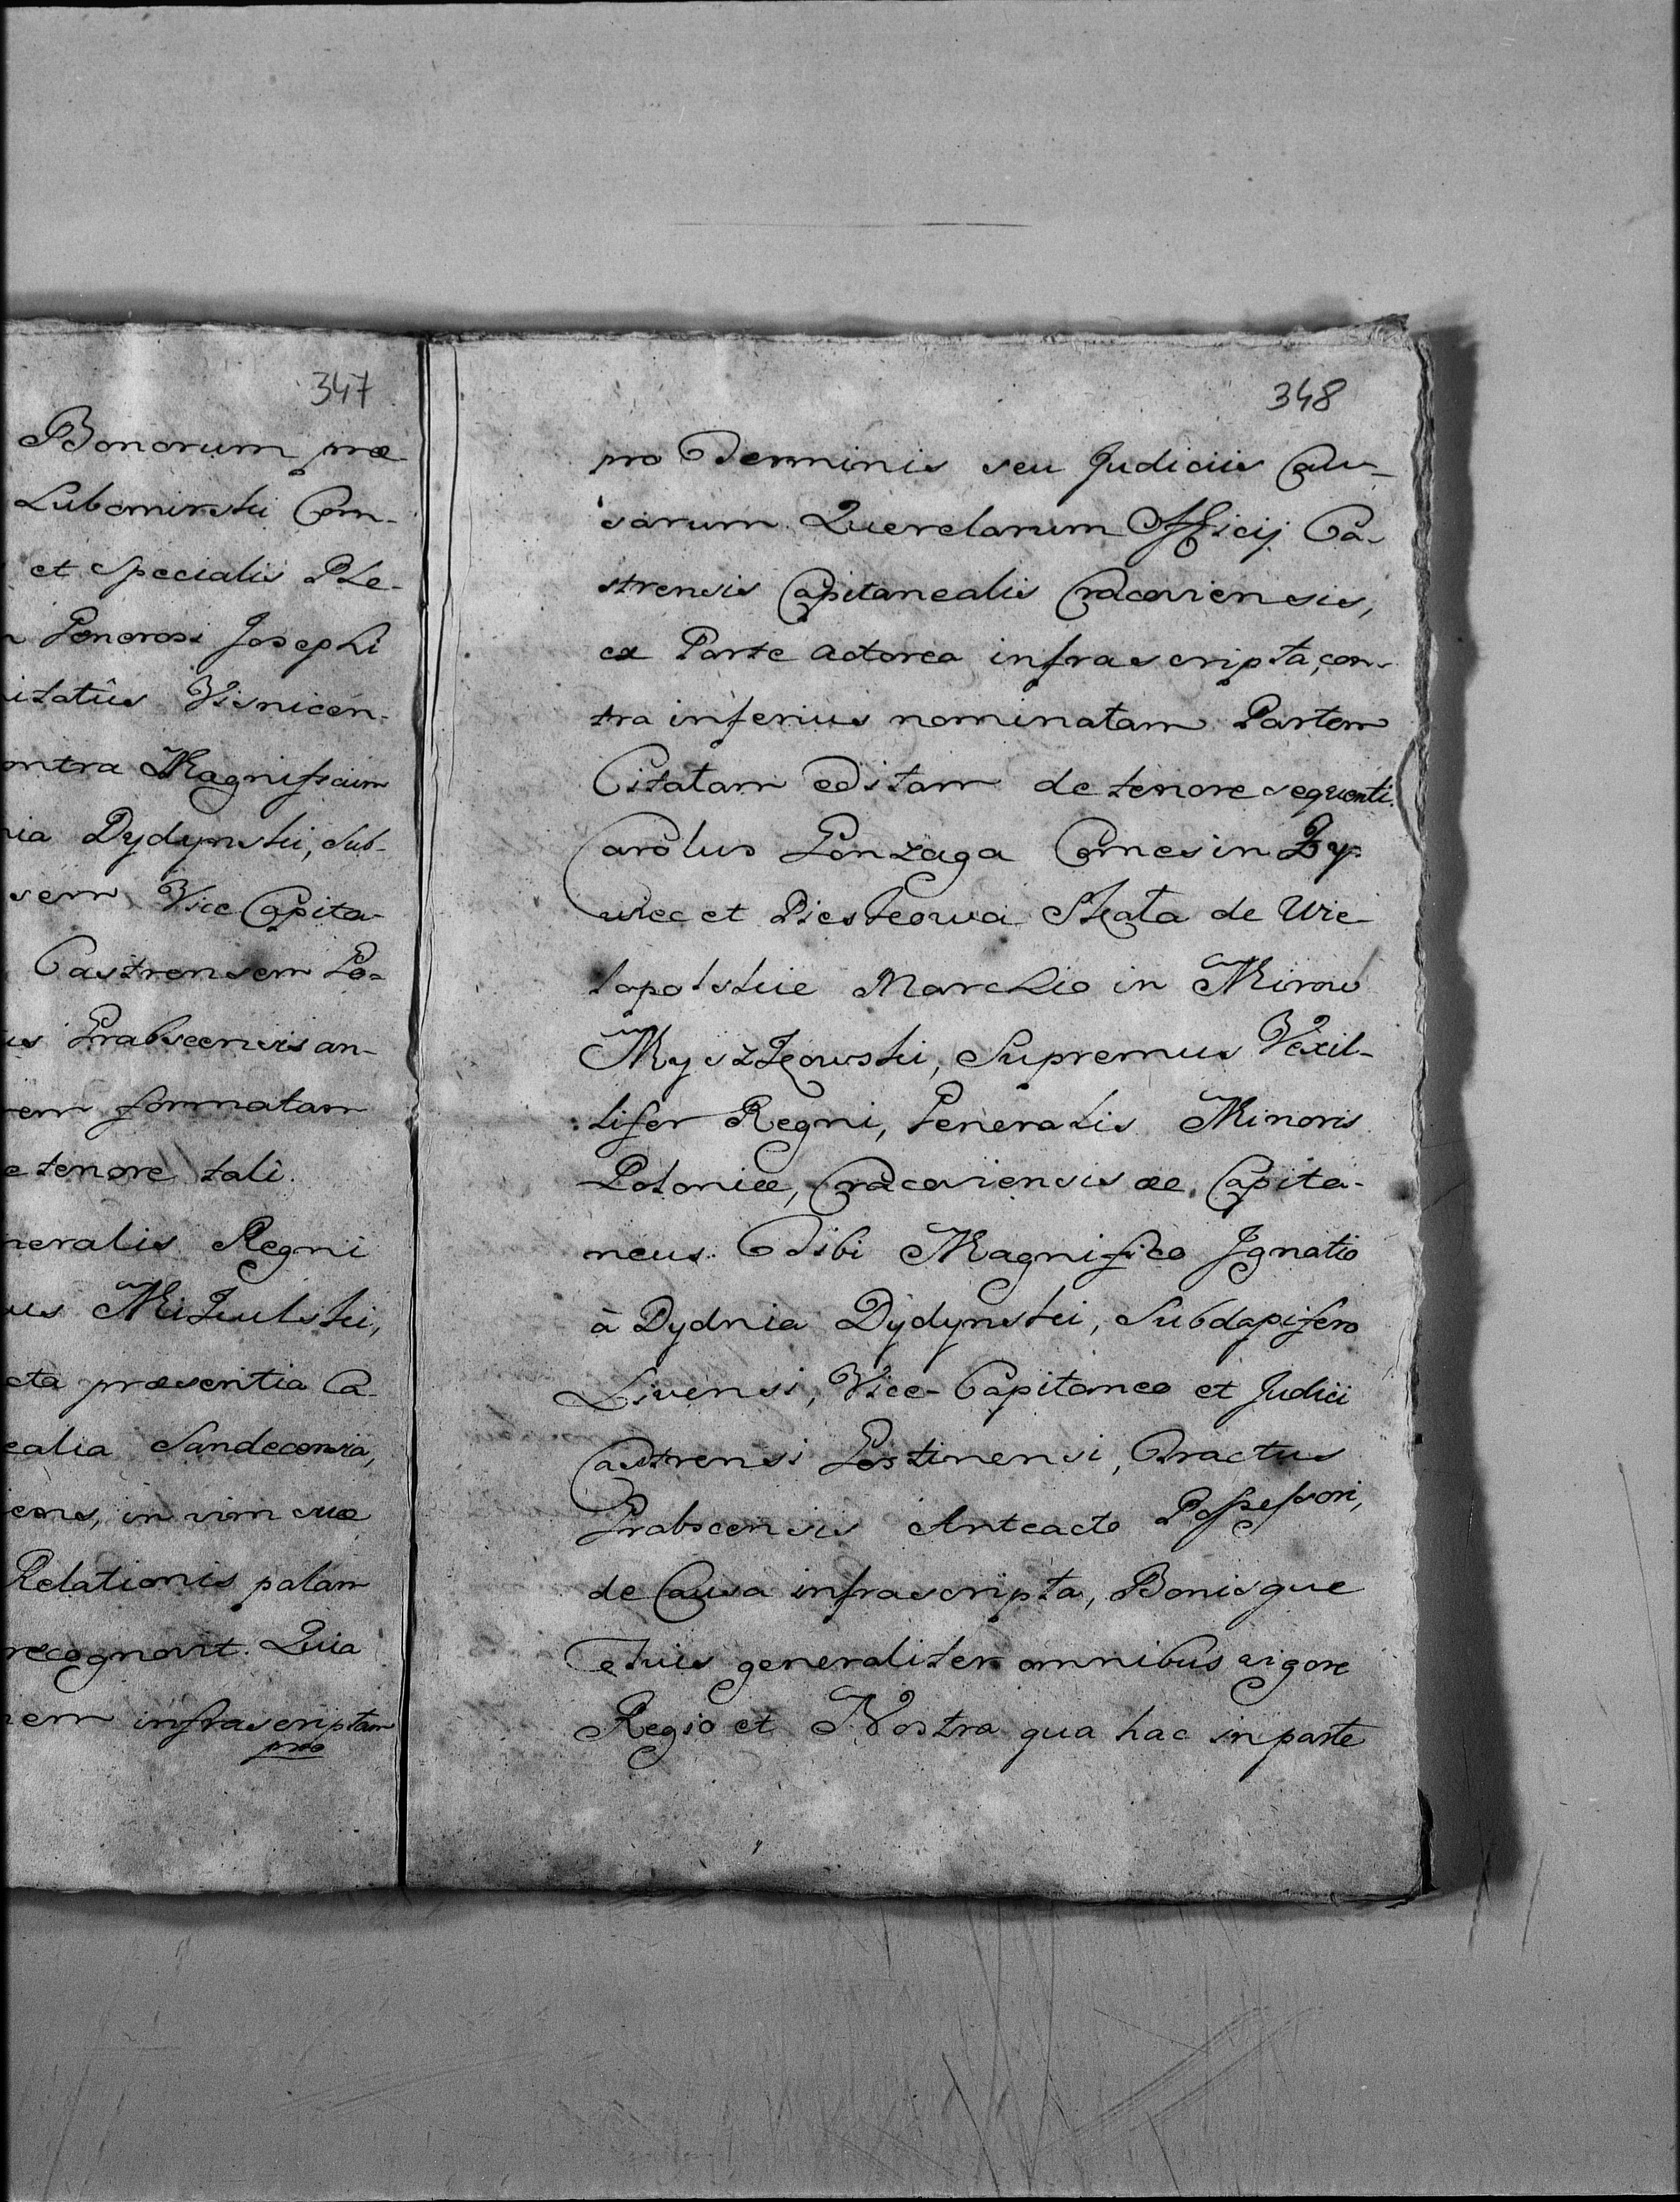 347
Bonorum præ-
Lubomirski Com-
et Specialis Ple-
Generosi Josephi
itatûs Visnicen-
ontra Magnificum
nia Dydynski, Sub-
sem Vice Capita-
Castrensem Po-
us Grabscensis an-
em formatam
e tenore tali.
neralis Regni
us Mikulski,
cta præsentia Ca-
ealia Sandecensia,
iens, in vim suæ
Relationis palam
recognovit. Quia
nem infrascriptam
pro
348
pro Terminis seu Judiciis Cau-
sarum Querelarum Officij Ca-
strensis Capitanealis Cracoviensis,
ex Parte Actorea infrascripta, con-
tra inferius nominatam Partem
Citatam editam de tenore sequenti.
Carolus Gonzaga Comes in Zy-
wiec et Pieskowa Skała de Wie-
lopolskie Marchio in Mirow
Myszkowski, Supremus Vexil-
lifer Regni, Generalis Minoris
Poloniæ, Cracoviensis æe, Capita-
neus. Tibi Magnifico Ignatio
à Dydnia Dydynski, Subdapifero
Livensi, Vice-Capitaneo et Judici
Castrensi Postinensi, Tractus
Grabscensis Anteacto Possessori,
de Causa infrascripta, Bonisque
Tuis generaliter omnibus vigore
Regio et Nostra qua hac in parte